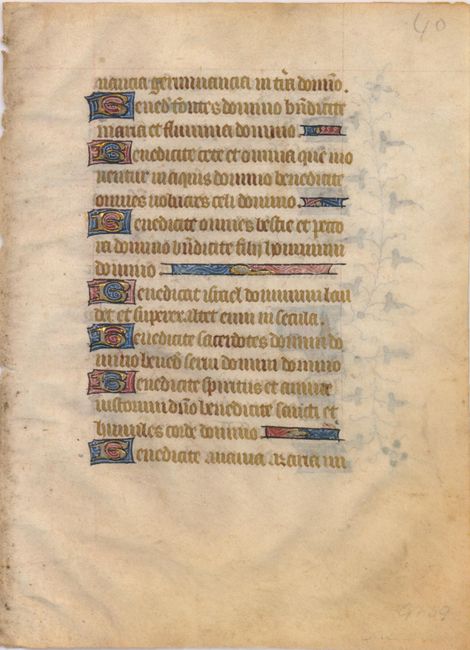 40
nancia germinancia in t̄ra domīo.
Bened' fontes domino bn̄dicite
maria et flumina domino
Benedicite cete et omnia que mo
uentur in aquis domino benedicite
omnes uolucres celi domino.
Benedicite omnes bestie et peco
ra domino bn̄dicite filij hominum
domino
Benedicat israel dominum lau
det et superexaltet eum in secula.
Benedicite sacerdotes domini do
mino bened' serui domini domino
Benedicite spiritus et anime
iustorum dn̄o benedicite sancti et
humiles corde domino
Benedicite anania azaria mi